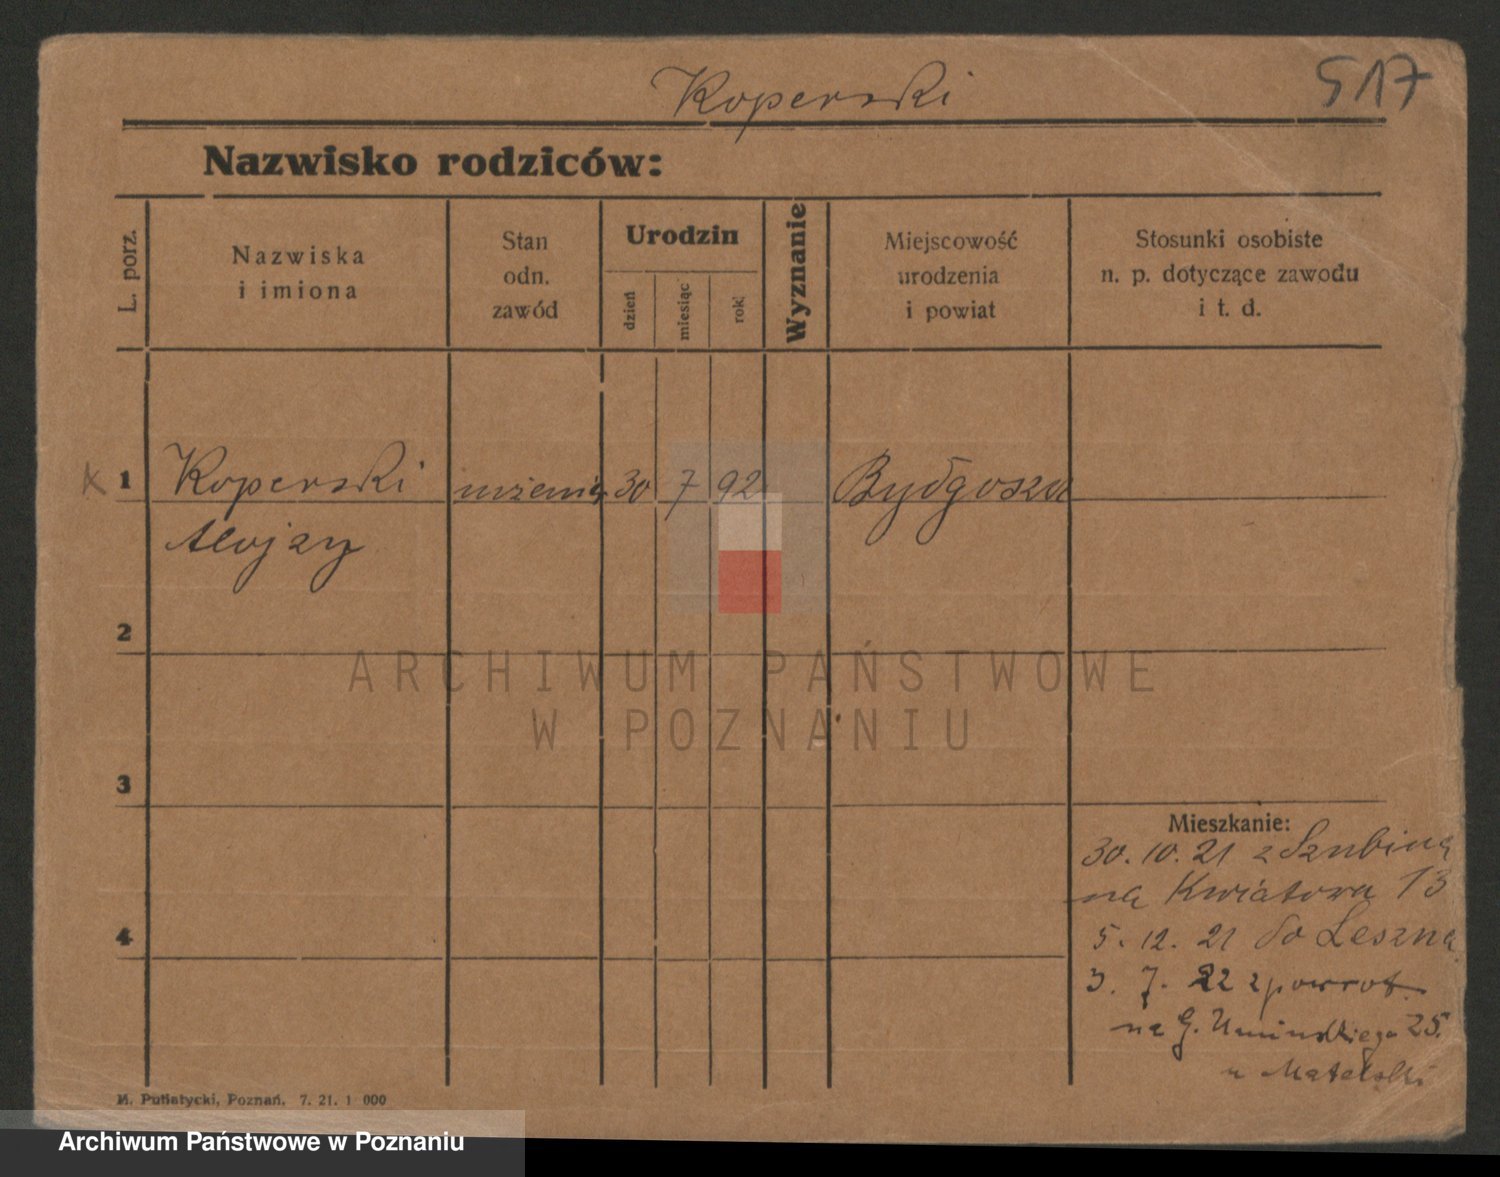 Koperski
517
Nazwisko rodziców:
L. porz.
Nazwiska
i imiona
Stan
odn.
zawód
Urodzin
dzień
miesiąc
rok
Wyznanie
Miejscowość
urodzenia
i powiat
Stosunki osobiste
n. p. dotyczące zawodu
i t. d.
x 1
Koperski
30 7 92
Bydgoszcz
Alojzy
2
ARCHIWUM PAŃSTWOWE
W POZNANIU
3
Mieszkanie:
30. 10. 21 z Szubina
na Kwiatowa 13
4
5. 12. 21 do Leszna
3. 7. 22 z powrot.
na G. Umińskiego 25.
u Matelski
M. Putiatycki, Poznań. 7. 21. 1 000
Archiwum Państwowe w Poznaniu